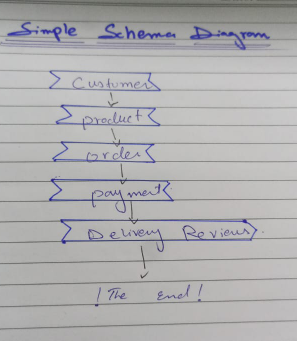 Simple Schema Diagram
Customer
product
order
payment
Delivery Reviews.
! The end !